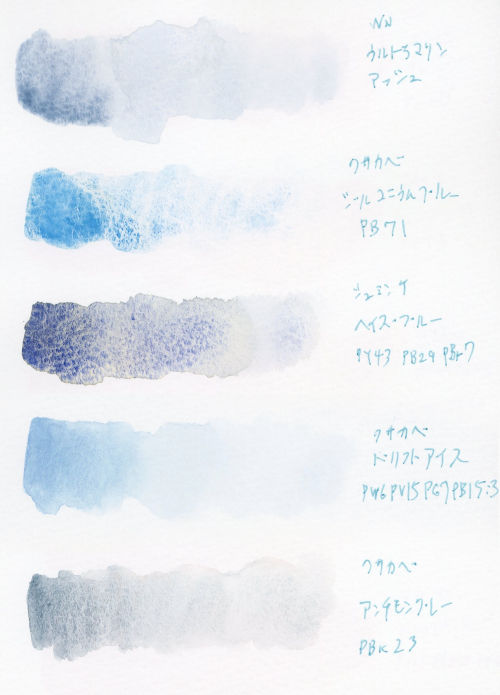 WN
ウルトラマリン
アッシュ
クサカベ
ジルコニウムブルー
PB71
シュミンケ
ヘイズ・ブルー
PY43 PB29 PBr7
クサカベ
ドリフトアイス
PW6 PV15 PG7 PB15:3
クサカベ
アンチモングレー
PBk23